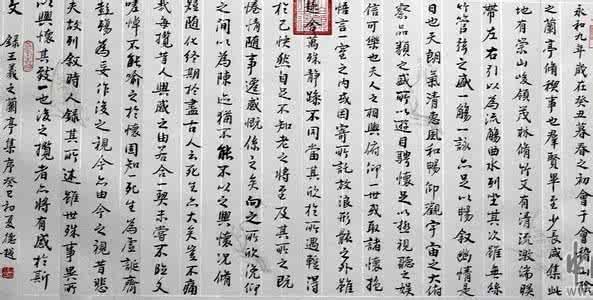 永和九年歲在癸丑暮春之初會于會稽山陰
之蘭亭脩稧事也羣賢畢至少長咸集此
地有崇山峻領茂林脩竹又有清流激湍暎
帶左右引以為流觴曲水列坐其次雖無絲
竹管弦之盛一觴一詠亦足以暢敘幽情是
日也天朗氣清惠風和暢仰觀宇宙之大俯
察品類之盛所以遊目騁懷足以極視聽之娛
信可樂也夫人之相與俯仰一世或取諸懷抱
悟言一室之內或因寄所託放浪形骸之外雖
趣舍萬殊靜躁不同當其欣於所遇輕得
於己快然自足不知老之將至及其所之既
惓情隨事遷感慨係之矣向之所欣俛仰
之間以為陳迹猶不能不以之興懷況脩
短隨化終期於盡古人云死生亦大矣豈不痛
哉每攬昔人興感之由若合一契未嘗不臨文
嗟悼不能喻之於懷固知一死生為虛誕齊
彭殤為妄作後之視今亦由今之視昔悲
夫故列敘時人錄其所述雖世殊事異所
以興懷其致一也後之攬者亦將有感於斯
文 錄王羲之蘭亭集序癸巳初夏德